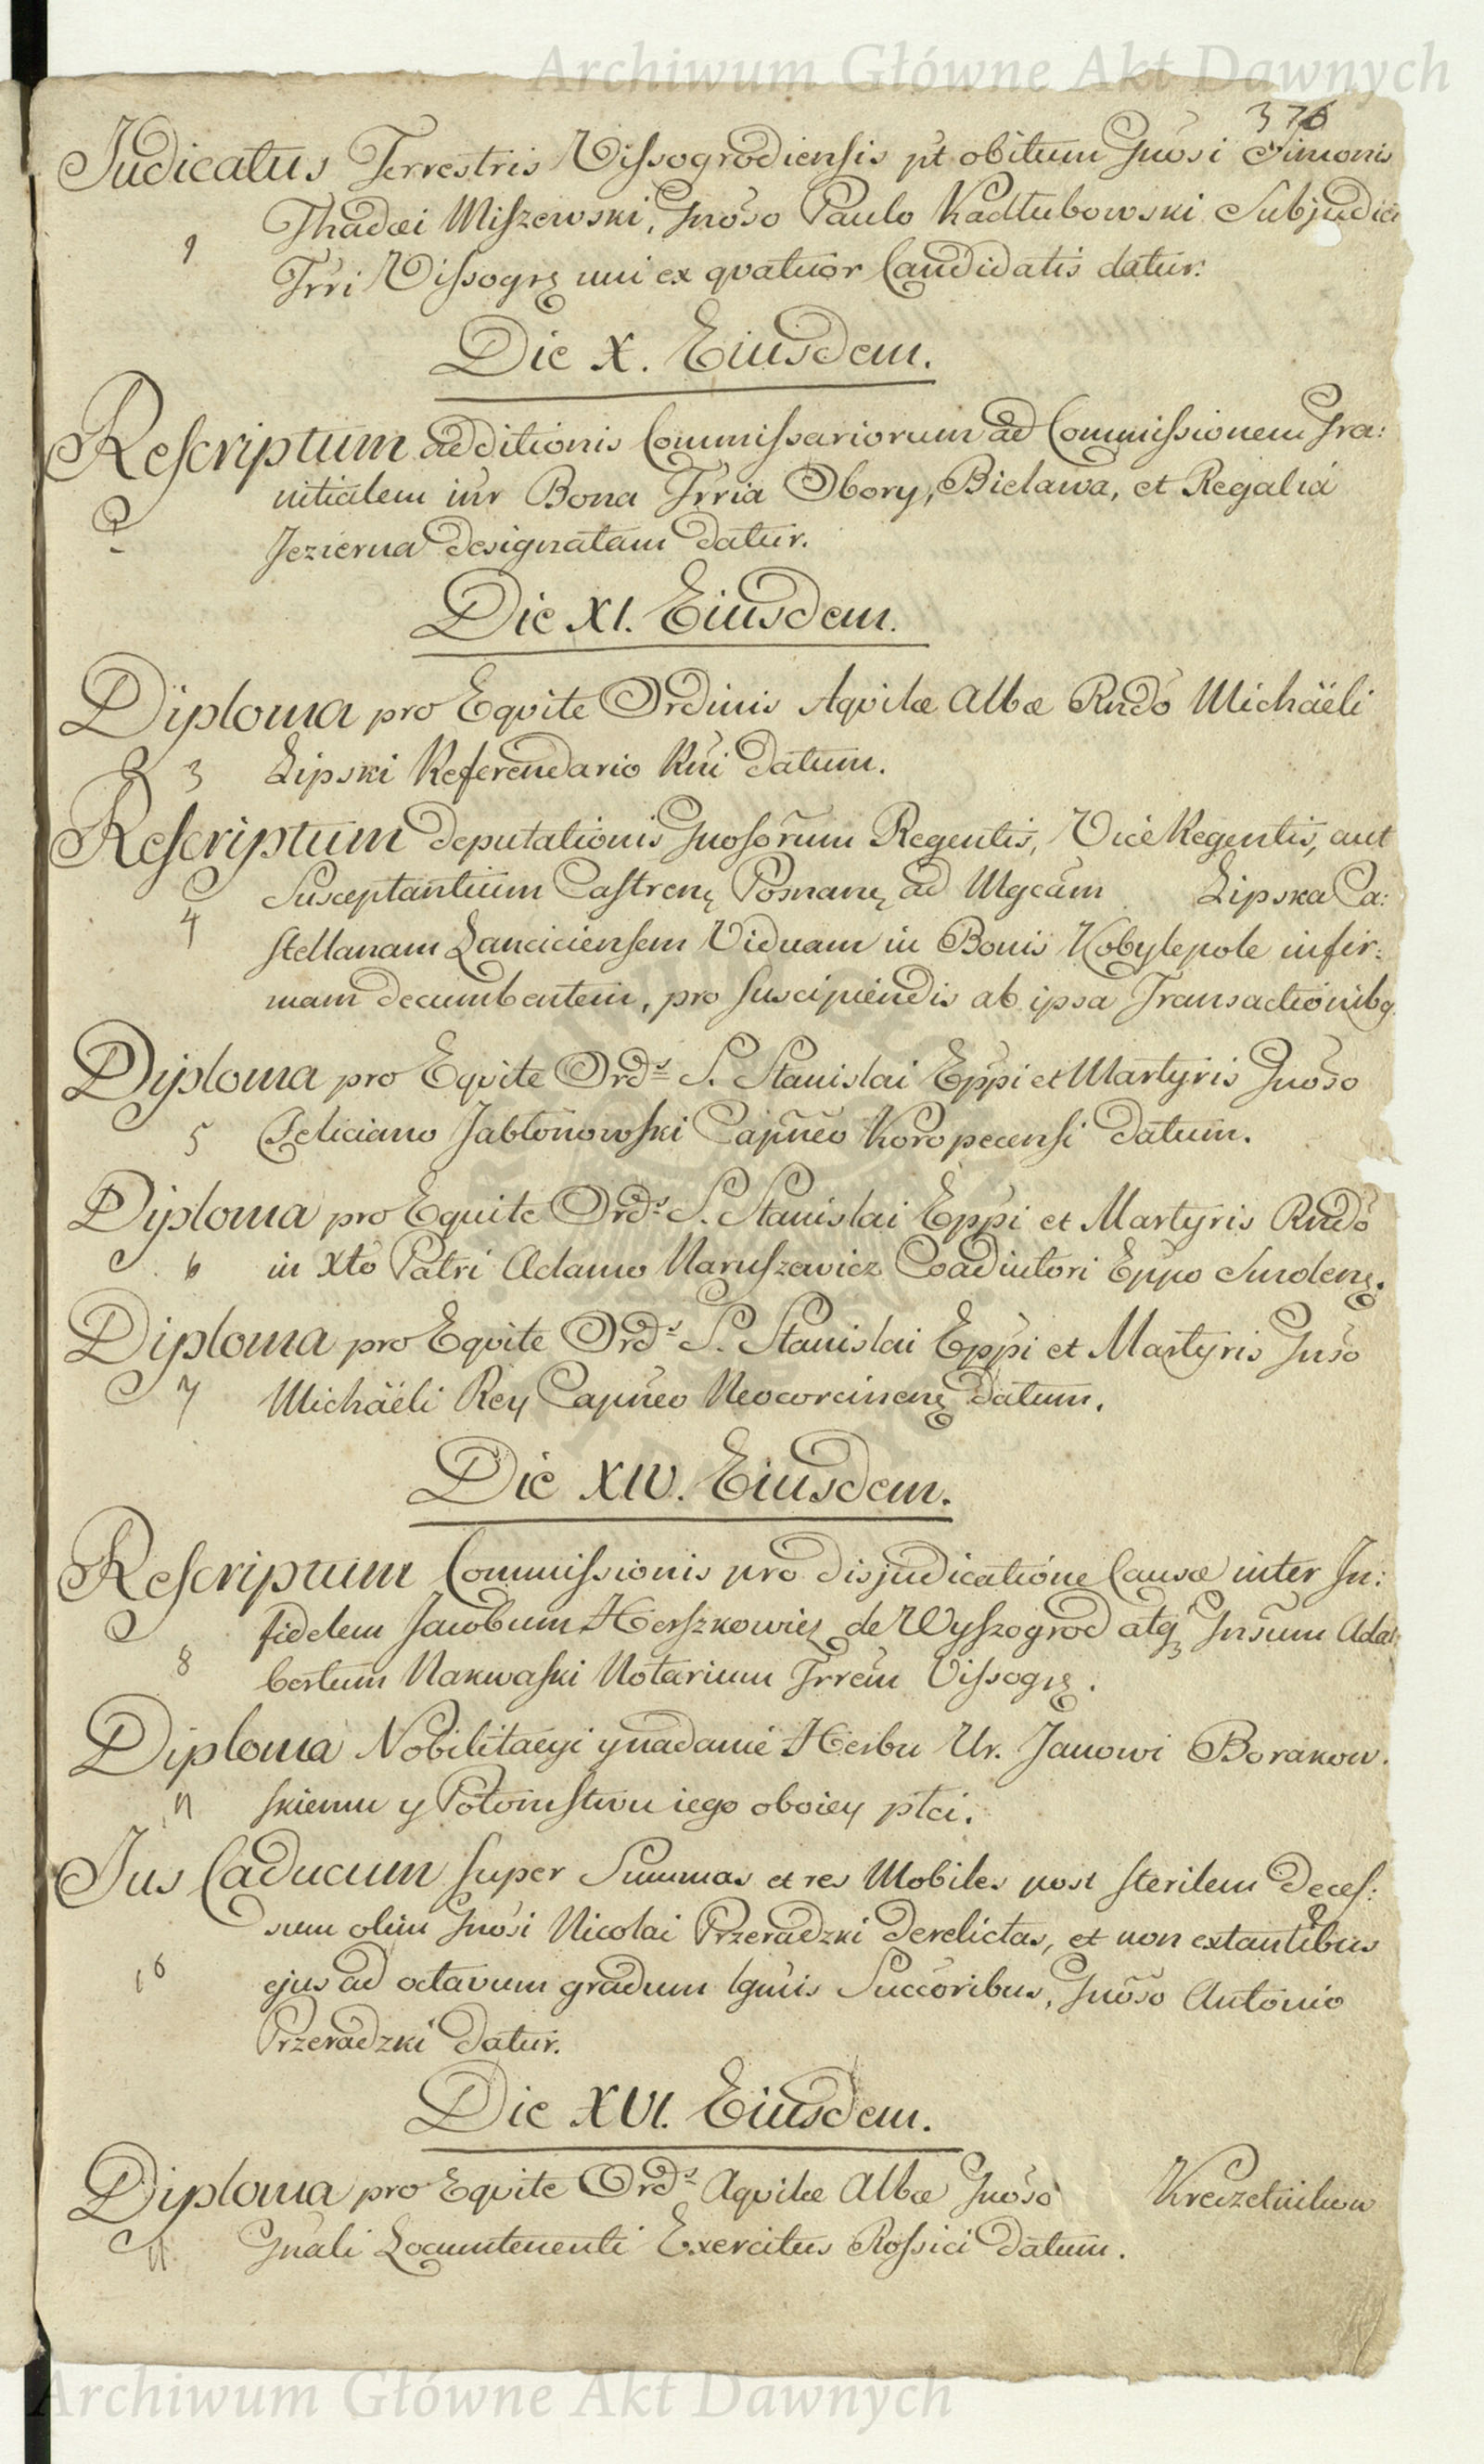 Archiwum Główne Akt Dawnych
376
Judicatus Terrestris Vissogrodiensis pt obitum Gnosi Simonis
Thadæi Miszewski, Gnoso Paulo Kadłubowski Subjudici
1
Trri Vissogrę uni ex qvatuor Candidatis datur.
Die X. Eiusdem.
Rescriptum additionis Commissariorum ad Commissionem Gra:
nitialem inr Bona Trria Obory, Bielawa, et Regalia
2
Jezierna designatam datur.
Die XI. Eiusdem.
Diploma pro Eqvite Ordinis Aqvilæ Albæ Rndo Michäeli
3 Lipski Referendario Rni datum.
Rescriptum deputationis Gnosorum Regentis, ViceRegentis, aut
Susceptantium Castrenę Posnanę ad Mgcam Lipska Ca:
4
stellanam Lanciciensem Viduam in Bonis Kobylepole infir:
mam decumbentem, pro suscipiendis ab ipsa Transactionibq
Diploma pro Eqvite Ords S. Stanislai Eppi et Martyris Gnoso
5 Feliciano Jabłonowski Capneo Koropecensi datum.
Diploma pro Equite Ords S. Stanislai Eppi et Martyris Rndo
6 in Xto Patri Adamo Naruszewicz Coadiutori Eppo Smolenę.
Diploma pro Eqvite Ords S. Stanislai Eppi et Martyris Gnso
7 Michäeli Rey Capneo Neocorcinenę datum.
Die XIV. Eiusdem.
Rescriptum Commissionis pro disjudicatione Causæ inter In:
fidelem Jacobum Herszkowicz de Wyszogrod atq Gnsum Adal
8
bertum Nakwaski Notarium Trrem Vissogrę.
Diploma Nobilitacyi y nadanie Herbu Ur. Janowi Borakow.
9 skiemu y Potomstwu iego oboiey płci.
Jus Caducum super Summas et res Mobiles post sterilem deces:
sum olim Gnosi Nicolai Przeradzki derelictas, et non extantibus
10
ejus ad octavum gradum lgmis Succoribus, Gnoso Antonio
Przeradzki datur.
Die XVI. Eiusdem.
Diploma pro Eqvite Ords Aqvilæ Albæ Gnoso Kreczetnikow
11 Gnali Locumtenenti Exercitus Rossici datum.
Archiwum Główne Akt Dawnych